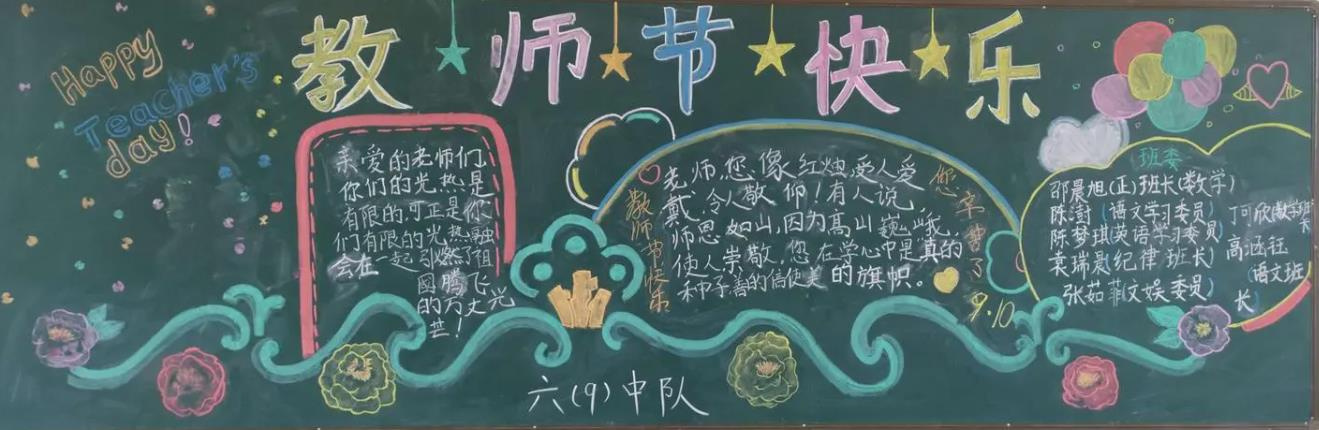 Happy
Teacher's
day!
教师节快乐
亲爱的老师们
你们的光热是
有限的,可正是你
们有限的光热融
会在一起引燃了祖
國腾飞
的万丈兴
芒!
教师节快乐
老师,您像红烛,受人爱
戴,令人敬仰!有人说,
师恩如山,因为高山巍峨,
使人崇敬,您在学心中是真的
种子,善的信使,美的旗帜。
您辛苦了
9.10
班委
邵晨旭(正)班长(数学)
陈澍(语文学习委员)
陈梦琪(英语学习委员)
袁瑞晨(纪律班长)
张茹菲(文娱委员)
丁可欣
高涵
(语文班
长)
六(9)中队